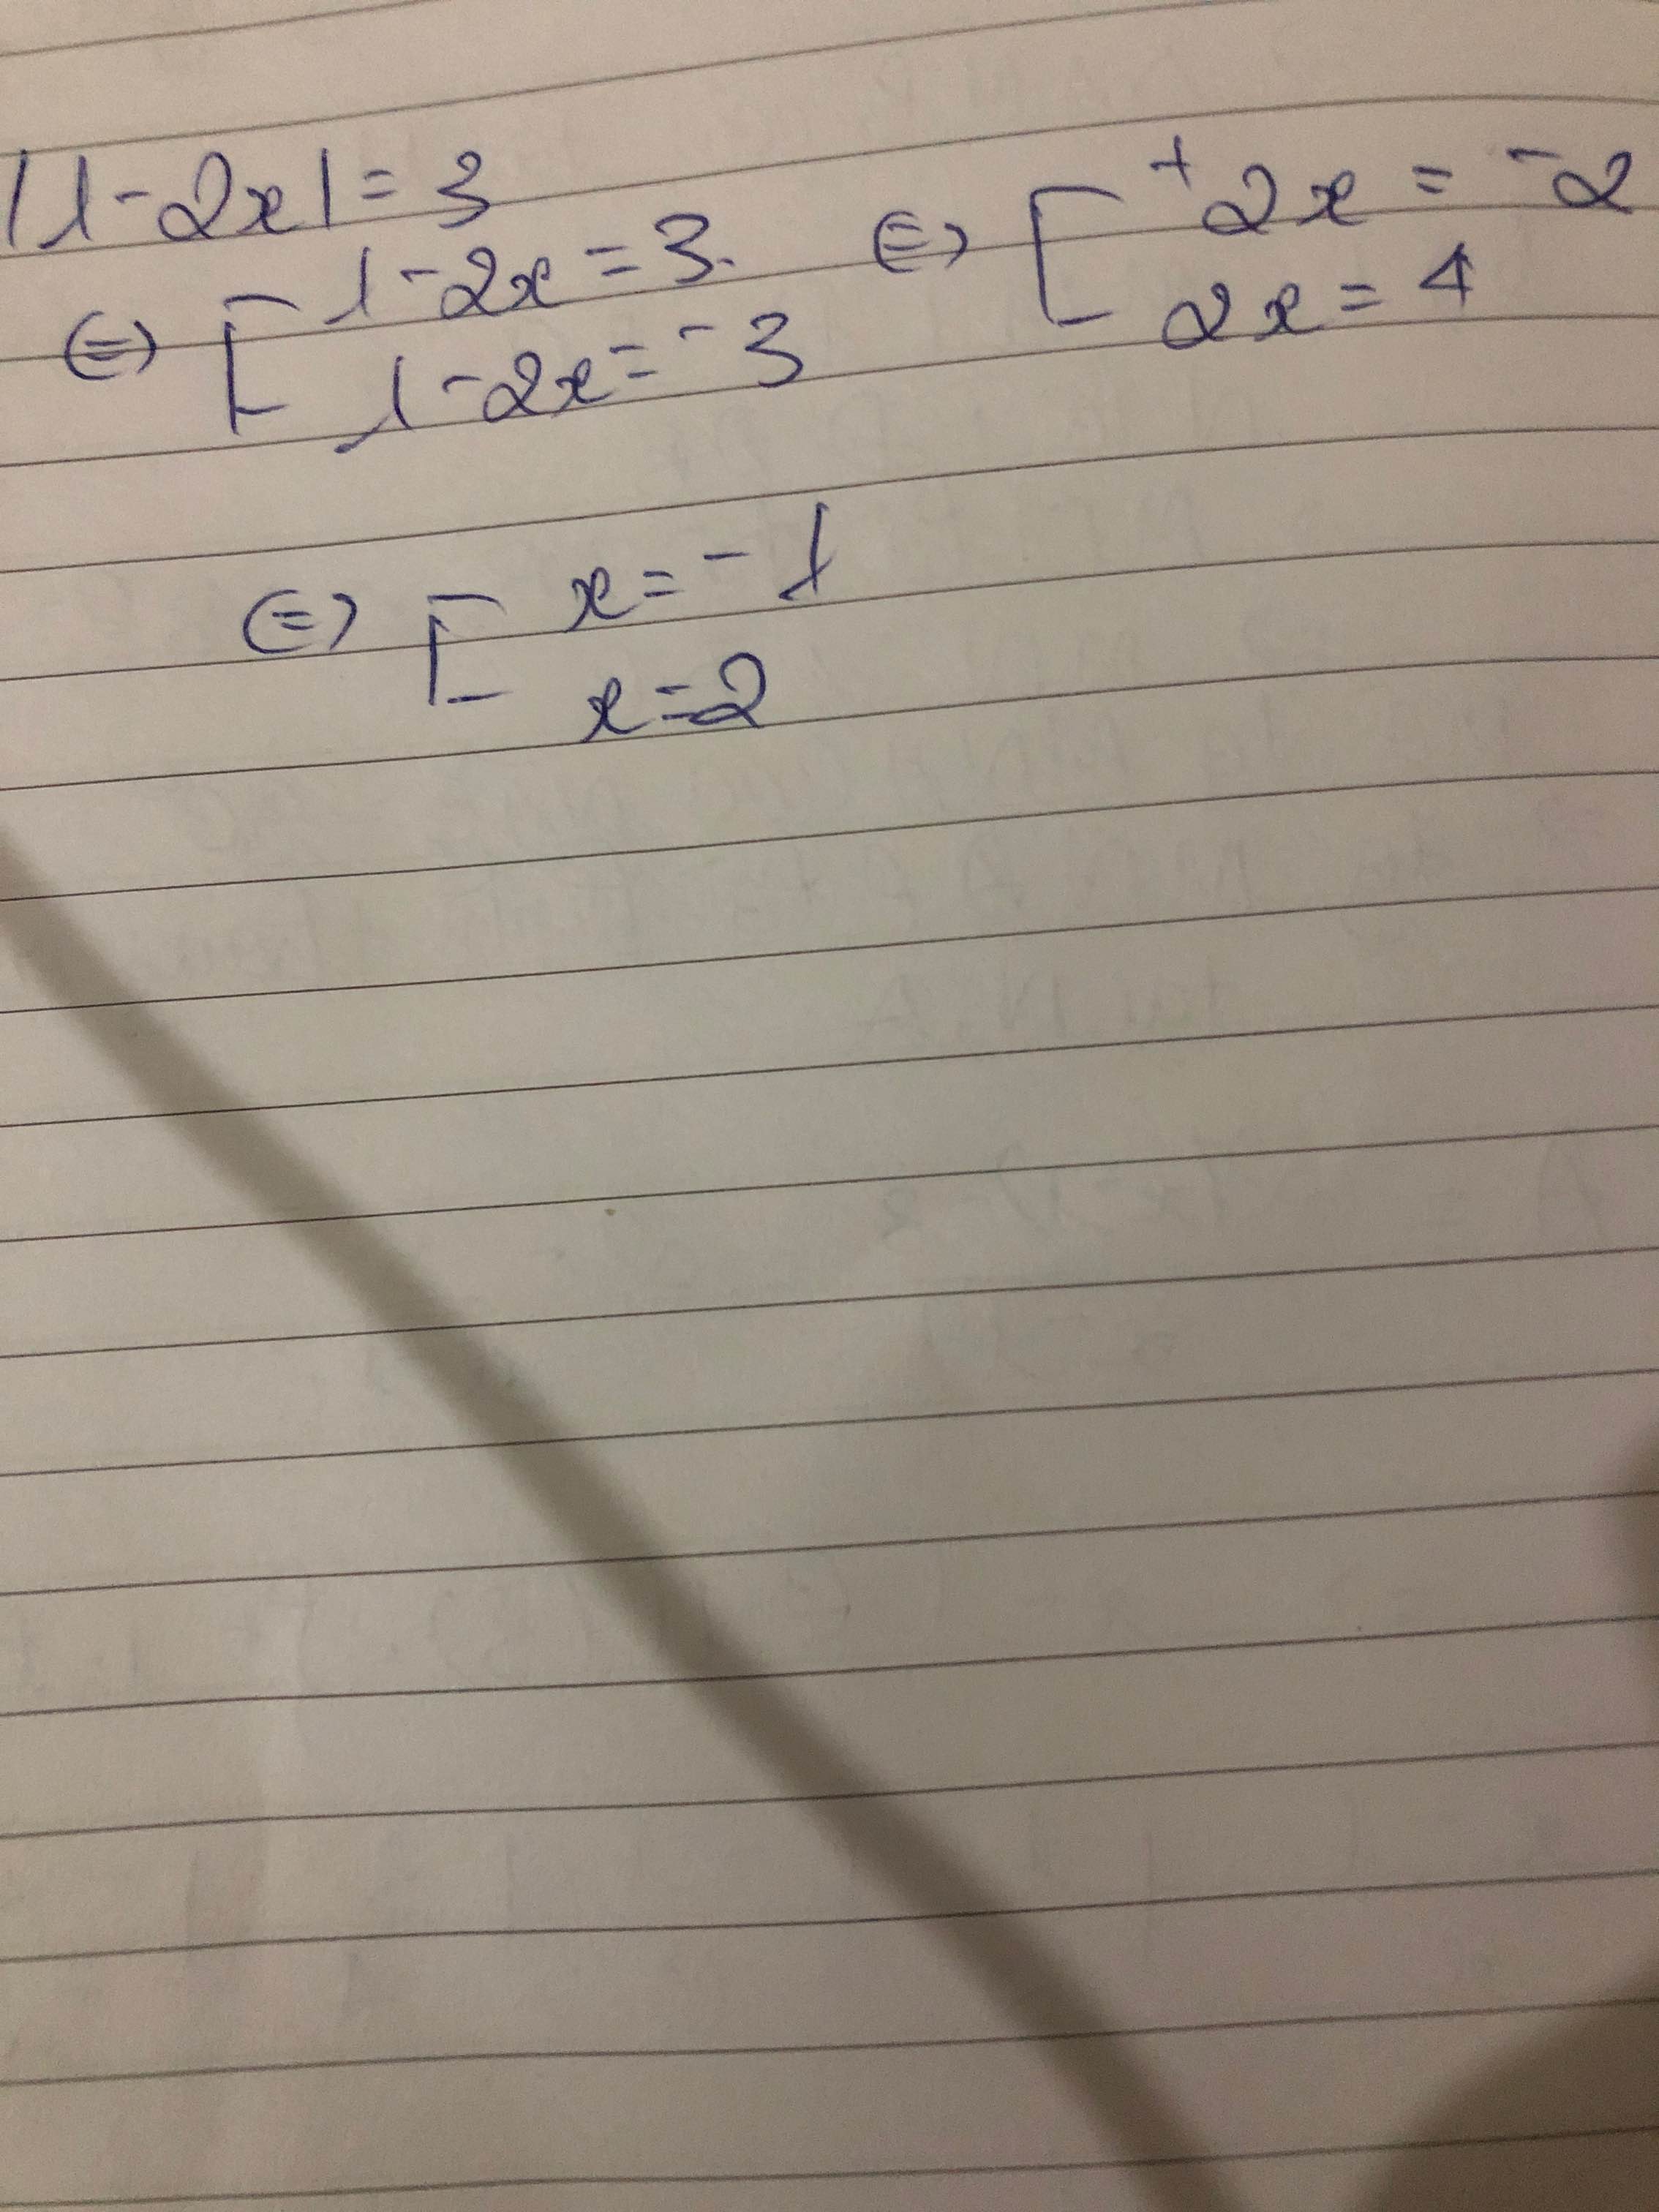 |1-2x|=3
⇔ [ 1-2x=3.
1-2x=-3
⇔ [ +2x=-2
2x=4
⇔ [ x=-1
x=2